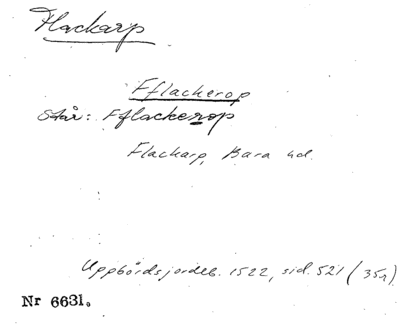 Flackarp
Fflackerop
står: Fflackerop
Flackarp, Bara hd.
Uppbördsjordeb. 1522, sid. 521 (35r)
Nr 6631.